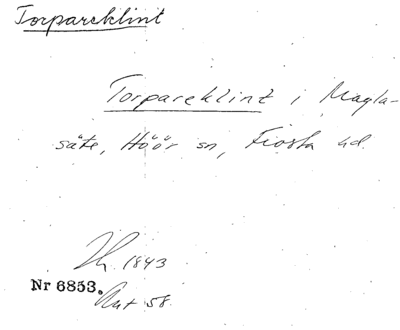 Torpareklint
Torpareklint i Magla-
säte, Höör sn, Frosta hd.
1843
Nr 6853.
58.